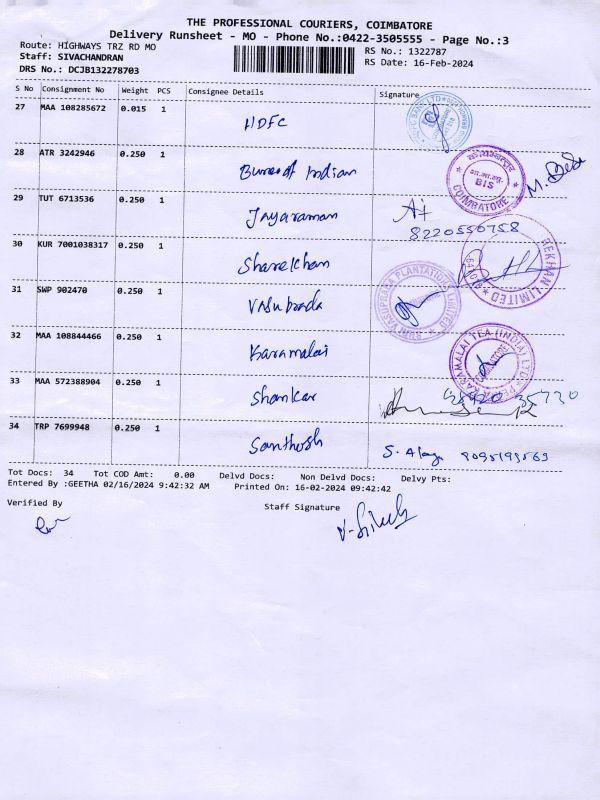 THE PROFESSIONAL COURIERS, COIMBATORE
Delivery Runsheet - MO - Phone No.:0422-3505555 - Page No.:3
Route: HIGHWAYS TRZ RD MO
RS No.: 1322787
Staff: SIVACHANDRAN
RS Date: 16-Feb-2024
DRS No.: DCJB132278703
S No Consignment No Weight PCS Consignee Details Signature
27 MAA 108285672 0.015 1 HDFC
28 ATR 3242946 0.250 1 Indian
BIS
COIMBATORE
29 TUT 6713536 0.250 1 Jayaraman
8220550758
30 KUR 7001038317 0.250 1 Sharekhan
REKHAN LIMITED
31 SWP 902470 0.250 1
PLANTATIONS LIMITED
32 MAA 108844466 0.250 1 Karamalai
KARAMALAI TEA (INDIA) LTD
COIMBATORE
33 MAA 572388904 0.250 1 Shankar
34 TRP 7699948 0.250 1 Santhosh
Tot Docs: 34 Tot COD Amt: 0.00 Delvd Docs: Non Delvd Docs: Delvy Pts:
Entered By :GEETHA 02/16/2024 9:42:32 AM Printed On: 16-02-2024 09:42:42
Verified By
Staff Signature